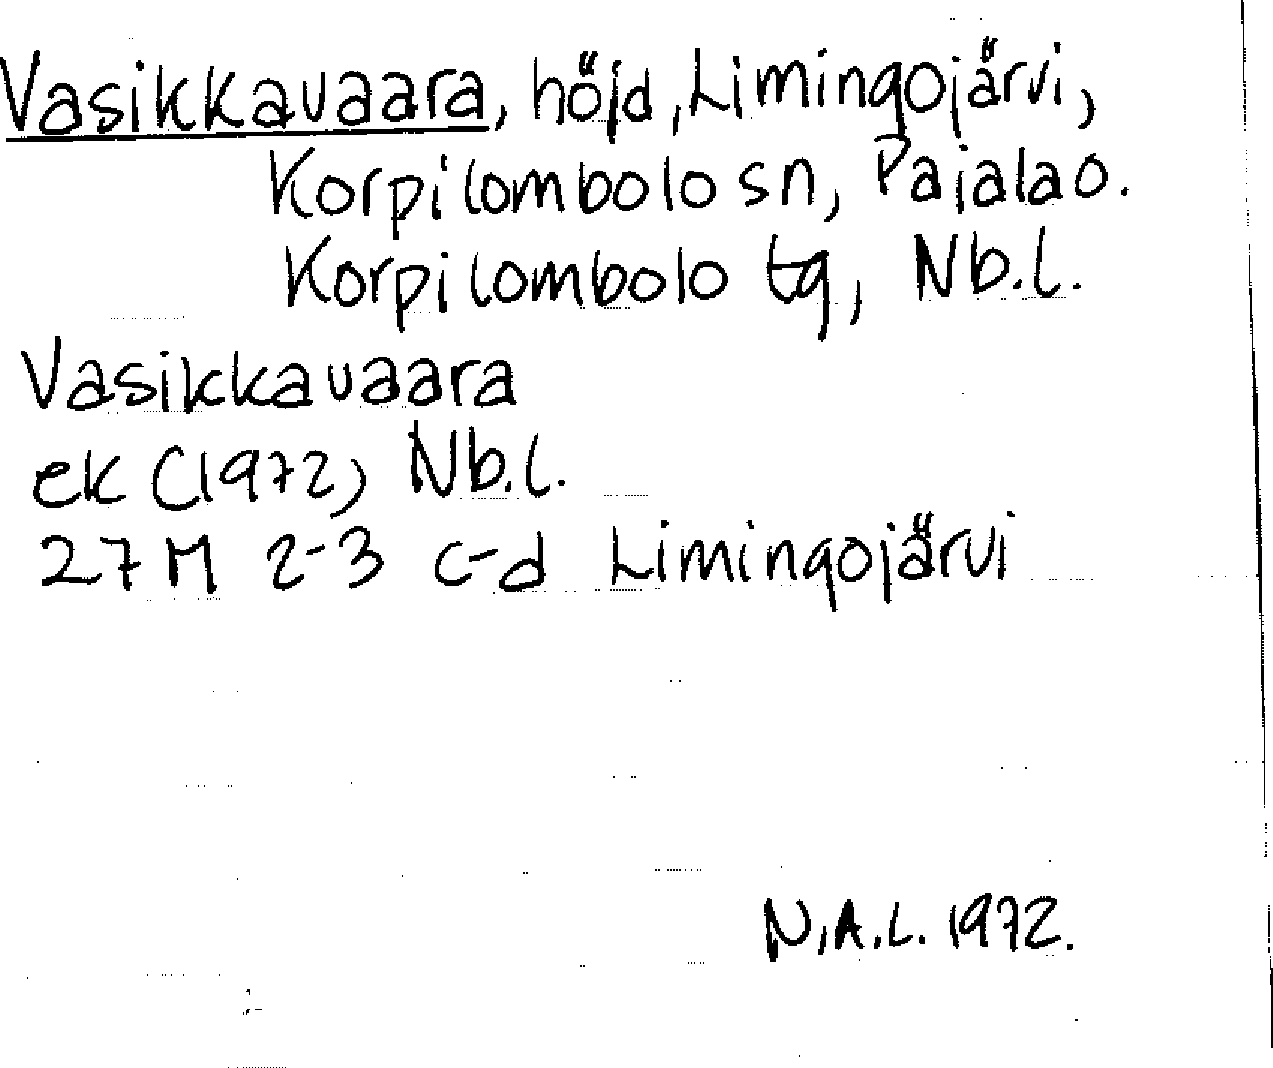 Vasikkavaara, höjd, Limingojärvi,
Korpilombolo sn, Pajala o.
Korpilombolo tg, Nb.l.
Vasikkavaara
ek (1972) Nb.l.
27 M 2-3 c-d Limingojärvi
N.A.L. 1972.